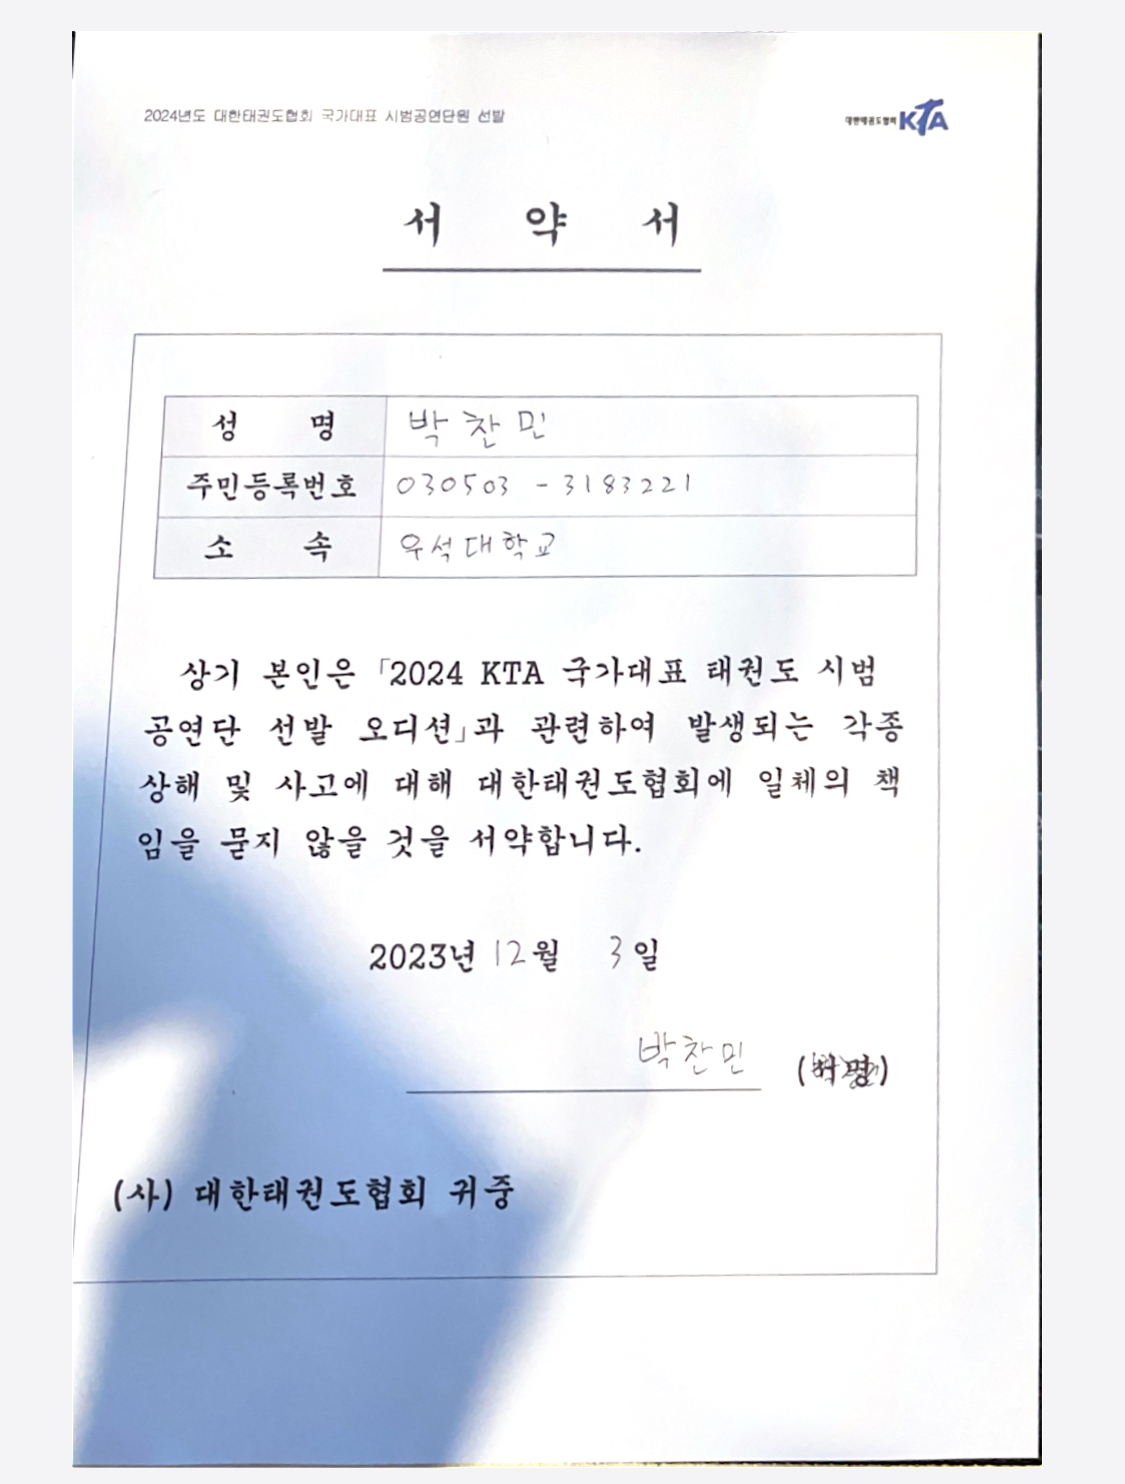 2024년도 대한태권도협회 국가대표 시범공연단원 선발
대한태권도협회 KTA
서 약 서
성 명 박찬민
주민등록번호 030503 - 3183221
소 속 우석대학교
상기 본인은 「2024 KTA 국가대표 태권도 시범
공연단 선발 오디션」과 관련하여 발생되는 각종
상해 및 사고에 대해 대한태권도협회에 일체의 책
임을 묻지 않을 것을 서약합니다.
2023년 12월 3일
박찬민
(사) 대한태권도협회 귀중